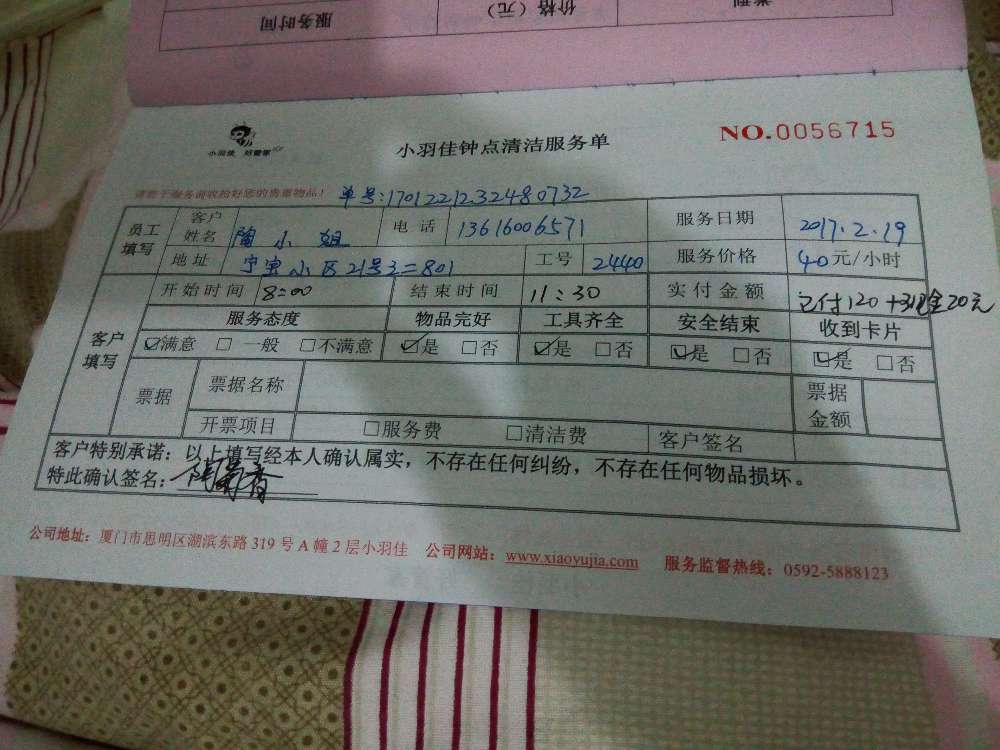 服务时间 价格（元） 类别
小羽佳 好管家
小羽佳钟点清洁服务单
NO.0056715
单号:17012212324807​32
员工填写 客户姓名 陶小姐 电话 13616006571 服务日期 2017.2.19
地址 宁宝小区21号之=801 工号 2440 服务价格 40元/小时
开始时间 8:00 结束时间 11:30 实付金额 已付120+现金20元
客户填写 服务态度 物品完好 工具齐全 安全结束 收到卡片
☑满意 □一般 □不满意 ☑是 □否 ☑是 □否 ☑是 □否 ☑是 □否
票据 票据名称 票据金额
开票项目 □服务费 □清洁费 客户签名
客户特别承诺：以上填写经本人确认属实，不存在任何纠纷，不存在任何物品损坏。
特此确认签名：陶菊香
公司地址：厦门市思明区湖滨东路 319 号 A 幢 2 层小羽佳 公司网站：www.xiaoyujia.com 服务监督热线：0592-5888123